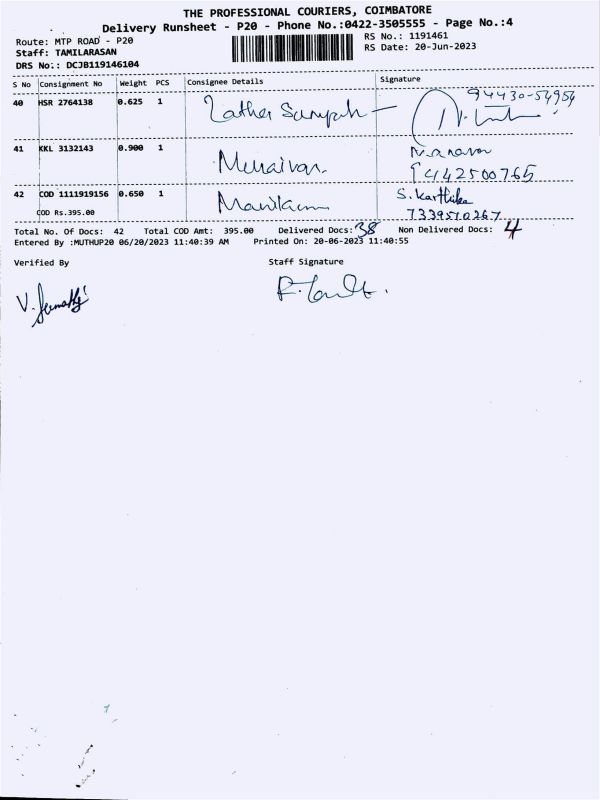 THE PROFESSIONAL COURIERS, COIMBATORE
Delivery Runsheet - P20 - Phone No.:0422-3505555 - Page No.:4
Route: MTP ROAD - P20
Staff: TAMILARASAN
DRS No.: DCJB119146104
RS No.: 1191461
RS Date: 20-Jun-2023
S No Consignment No Weight PCS Consignee Details Signature
40 HSR 2764138 0.625 1 94430-54954
41 KKL 3132143 0.900 1
9442500765
42 COD 1111919156 0.650 1 S. Karthika
COD Rs.395.00 7339510267
Total No. Of Docs: 42 Total COD Amt: 395.00 Delivered Docs: 38 Non Delivered Docs: 4
Entered By :MUTHUP20 06/20/2023 11:40:39 AM Printed On: 20-06-2023 11:40:55
Verified By Staff Signature